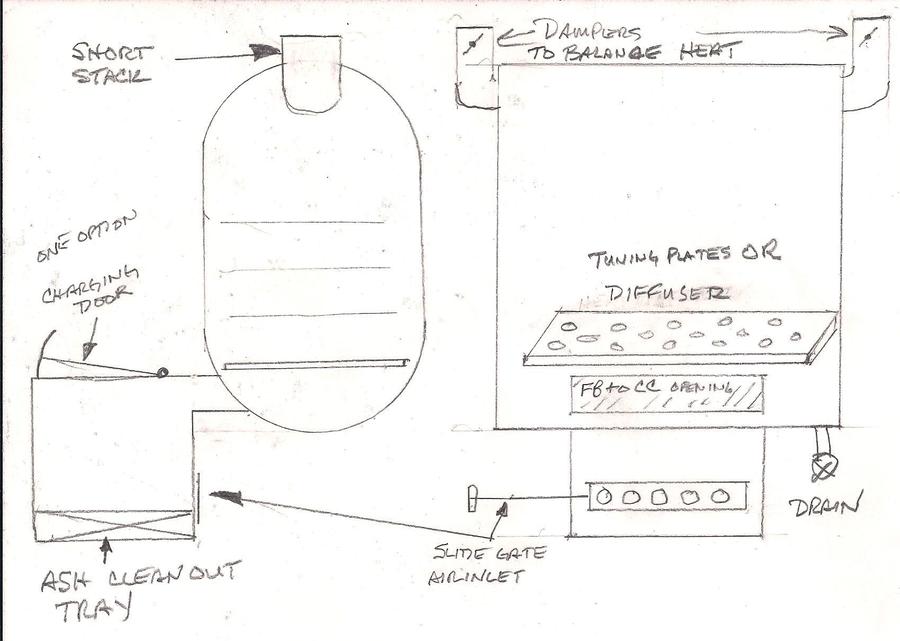 SHORT
STACK
DAMPERS
TO BALANCE HEAT
ONE OPTION
CHARGING
DOOR
TUNING PLATES OR
DIFFUSER
FB to CC OPENING
DRAIN
SLIDE GATE
AIR INLET
ASH CLEAN OUT
TRAY